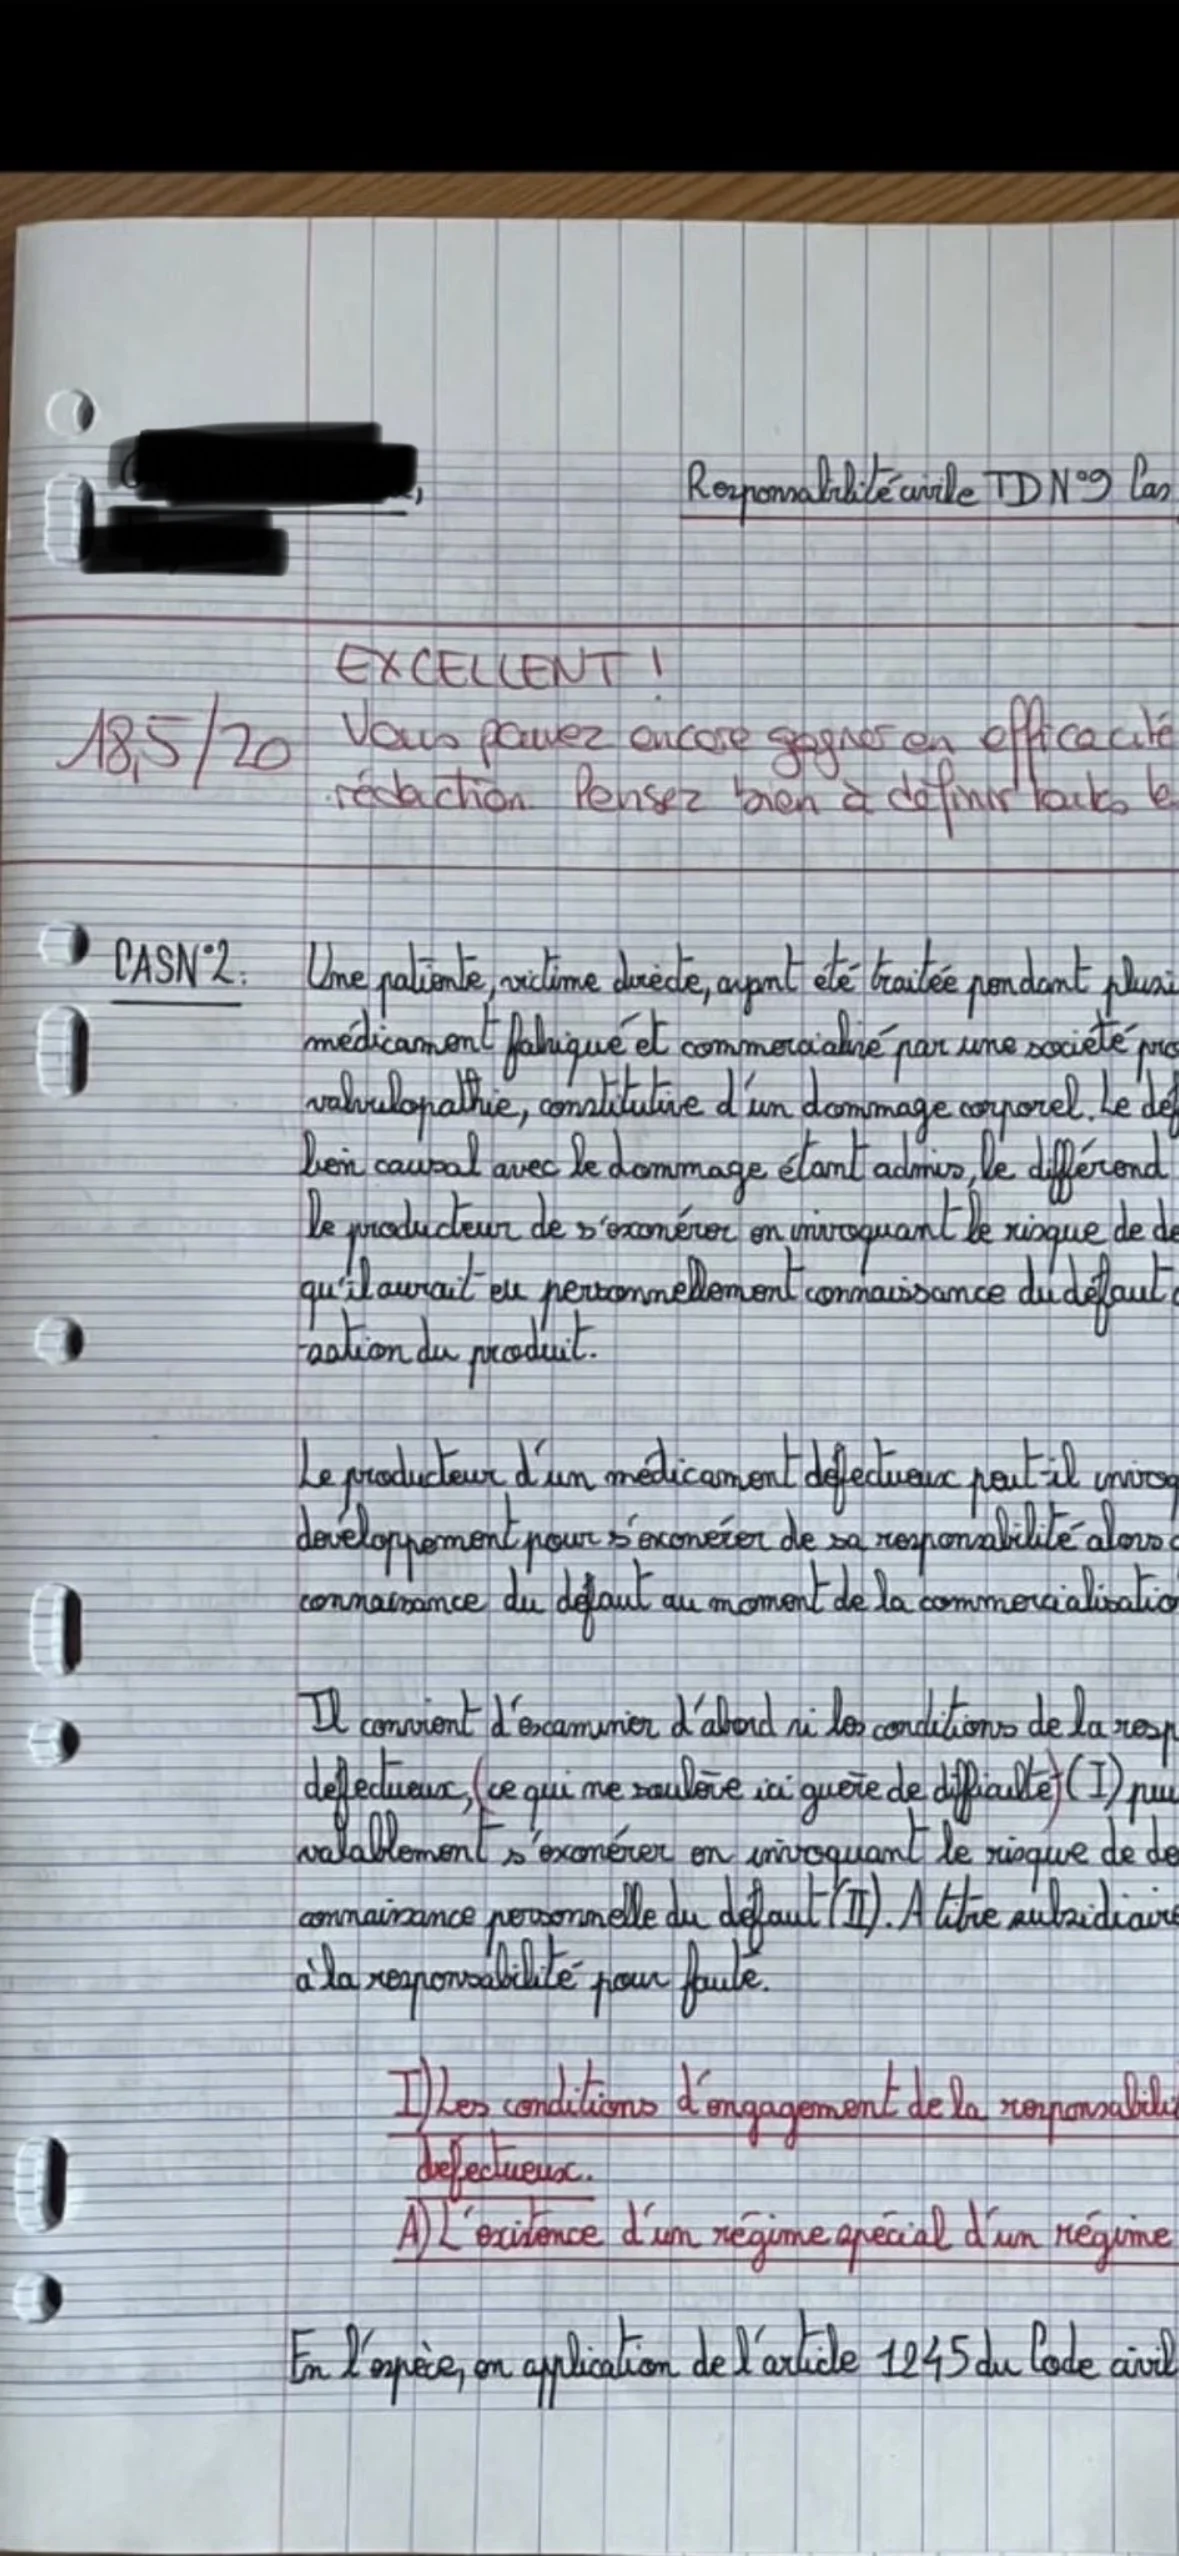 Responsabilité civile TD N°9 Cas
EXCELLENT !
18,5/20
Vous pouvez encore gagner en efficacité
rédaction. Pensez bien à définir
CAS N°2:
Une patiente, victime directe, ayant été traitée pendant plusi
médicament fabriqué et commercialisé par une société pro
valvulopathie, constitutive d'un dommage corporel. Le déf
lien causal avec le dommage étant admis, le différend
le producteur de s'exonérer en invoquant le risque de dé
qu'il aurait eu personnellement connaissance du défaut
-sation du produit.
Le producteur d'un médicament défectueux peut-il invoq
développement pour s'exonérer de sa responsabilité alors
connaissance du défaut au moment de la commercialisatio
Il convient d'examiner d'abord si les conditions de la resp
défectueux, (ce qui ne soulève ici guère de difficulté) (I) pui
valablement s'exonérer en invoquant le risque de dé
connaissance personnelle du défaut (II). A titre subsidiaire
à la responsabilité pour faute.
I) Les conditions d'engagement de la responsabili
défectueux.
A) L'existence d'un régime spécial d'un régime
En l'espèce, en application de l'article 1245 du Code civil